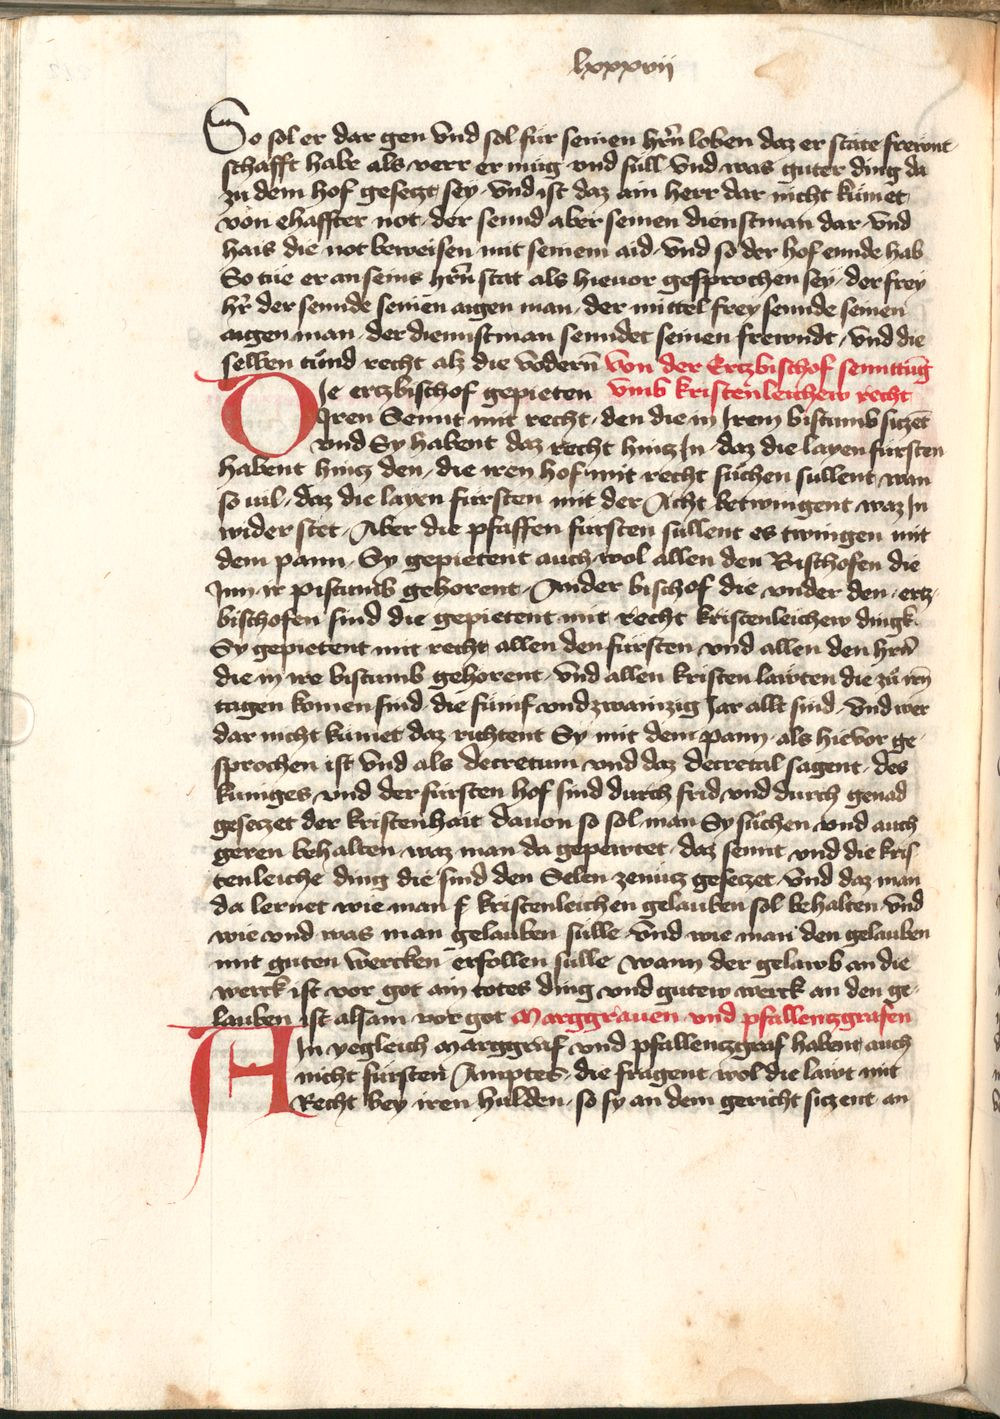 lxxxvii
So sol er dar gen vnd sol für seinen hr̄n loben daz er stäte frewnt
schafft habe als verr er müg vnd süll vnd was guter ding da
zu dem hof gesetzt sey · vnd ist daz ain herr dar nicht kümet ·
von ehaffter not · der sennd aber seinen dienstman dar · vnd
hais die not beweisen mit seinem aid · vnd so der hof ennde hab
So tüe er an seins hr̄n stat als hieuor gesprochen sey · der frey
hr̄ der sennde seinen aigen man · der mittel frey sennde seinen
aigen man · der diennstman senndet seinen frewndt · vnd die
selben tůnd recht alz die vodern̄ Von der Ertzbischof senntūg
Die ertzbischof gepieten vmb kristenleichew recht
Iren Sennt mit recht · den die in Irem bistumb siczēt
vnd Sy habent daz recht hintz In · daz die layen fürsten
habent hintz den · die iren hof mit recht süchen sullent wan
so uil · daz die layen fürsten mit der Acht betwingent waz In
wider stet · Aber die pfaffen fürsten süllent es twingen mit
dem pann · Sy gepietent auch wol allen den Bischofen die
Inn ir pistumb gehorent · Ander bischof die vnder den ertz
bischofen sind die gepietent mit recht kristenleichew dingk ·
Sy gepietent mit recht allen den fürsten vnd allen den hrn̄
die in ire bistumb gehorent · vnd allen kristen lawten die zů irn̄
tagen komen sind · die fünf vnd zwainzig Jar allt sind · vnd wer
dar nicht kümet daz richtent Sy mit dem pann · als hieuor ge
sprochen ist vnd als decretum vnd daz decretal sagent · des
kuniges vnd der fürsten hof sind durch frid vnd durch genad
gesetzet der kristenhait dauon so sol man Sy süchen vnd auch
geren behalten waz man da gepewtet · daz sennt vnd die kris
tenleiche ding die sind den Selen ze nutz gesetzet · vnd daz man
da lernet wie man kristenleichen gelauben sol behalten · vnd
wie vnd was man gelauben sülle · vnd wie man den gelauben
mit guten wercken erfollen sülle · wann der gelawb an die
werck ist vor got ain totes ding vnd gutew werck an den ge
lauben ist alsam vor got Marggrauen vnd pfallentzgrafen
Ain yegleich Marggraf vnd pfallentzgraf habent auch
nicht fürsten Amptes · die fragent wol die lawt mit
Recht bey iren hulden · so sy an dem gericht siczent an